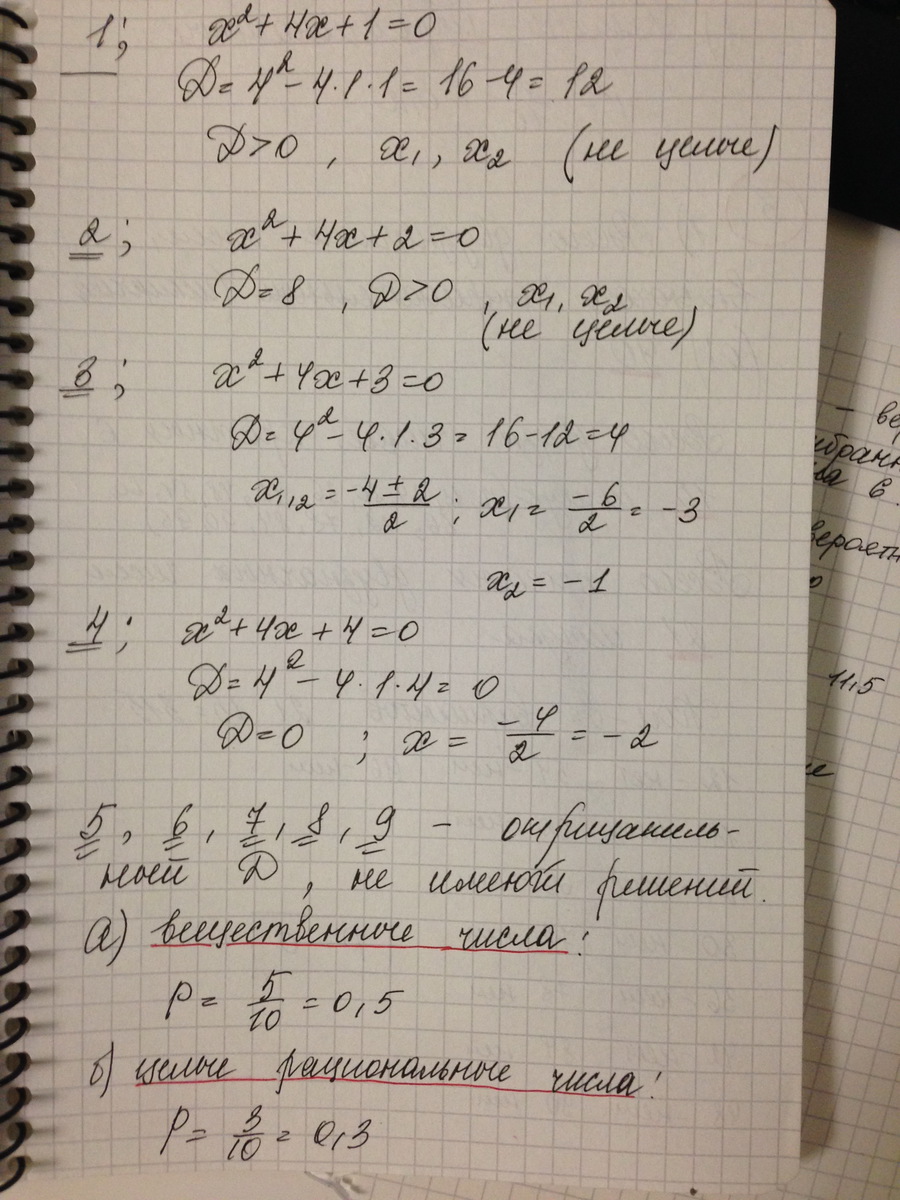 1; x² + 4x + 1 = 0
D = 4² - 4·1·1 = 16 - 4 = 12
D > 0 , x₁ , x₂ (не целые)
2; x² + 4x + 2 = 0
D = 8 , D > 0 , x₁, x₂
(не целые)
3; x² + 4x + 3 = 0
D = 4² - 4·1·3 = 16 - 12 = 4
x₁,₂ = (-4 ± 2)/2 ; x₁ = -6/2 = -3
x₂ = -1
4; x² + 4x + 4 = 0
D = 4² - 4·1·4 = 0
D = 0 ; x = -4/2 = -2
5, 6, 7, 8, 9 - отрицатель-
ный D , не имеют решений.
а) вещественные числа:
P = 5/10 = 0,5
б) целые рациональные числа:
P = 3/10 = 0,3
11,5